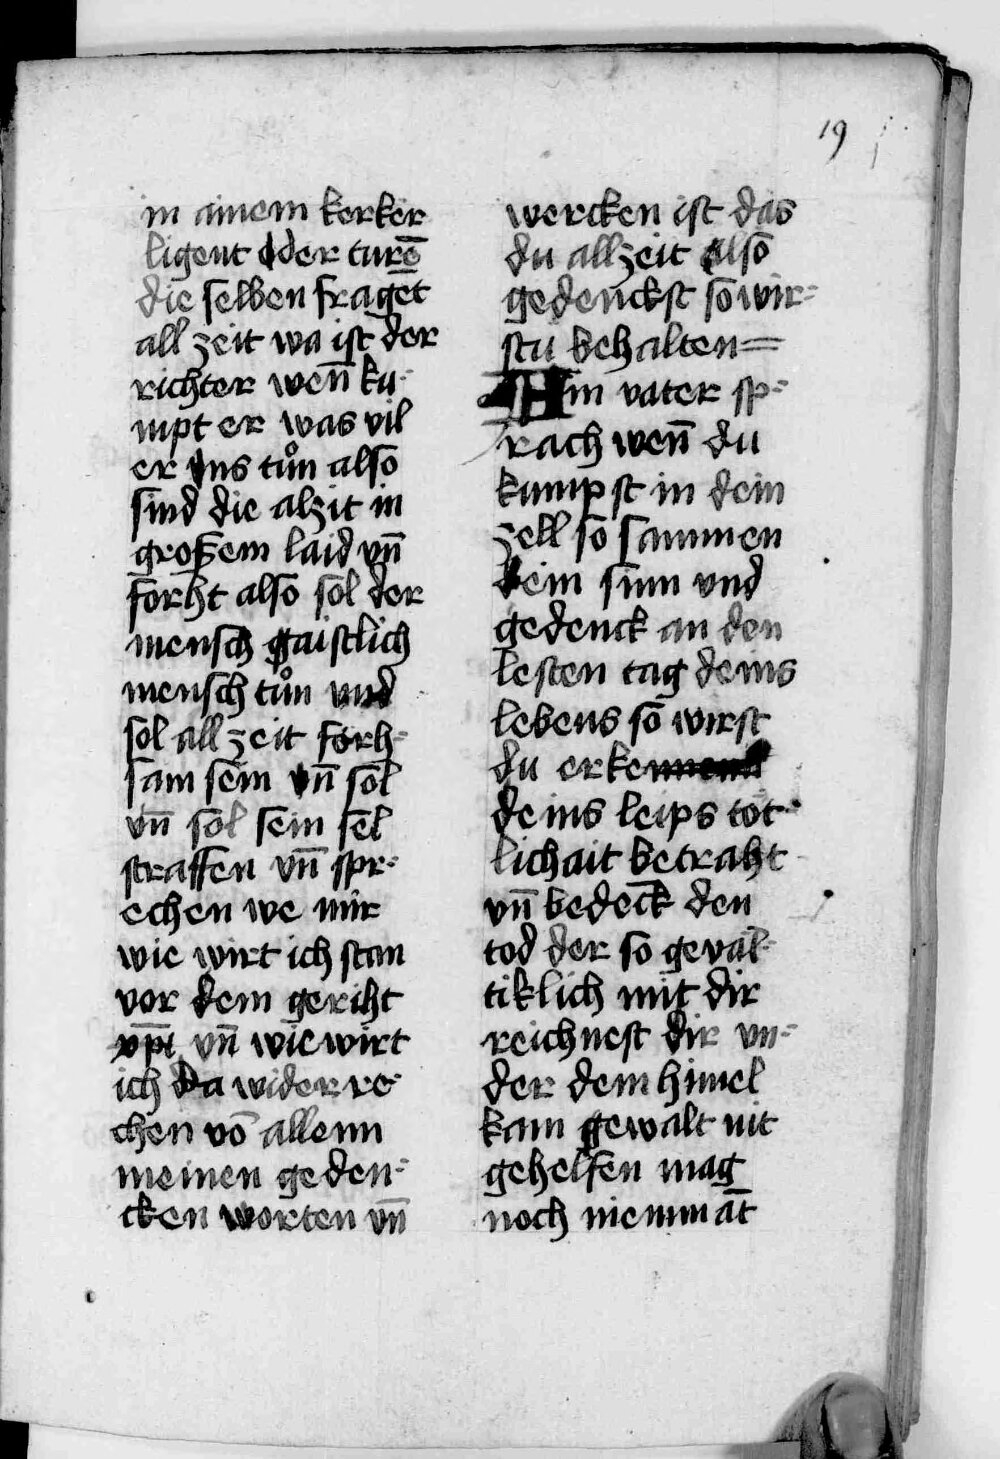 19
in ainem kerker
ligent oder turē
die selben fraget
all zeit wa ist der
richter weñ ku-
mpt er was vil
er uns tůn also
sind die alzit in
großem laid vñ
forht also sol der
mensch gaistlich
mensch tůn und
sol all zeit forh-
sam sein vñ sol
vñ sol sein sel
straffen vñ spr-
echen we mir
wie wirt ich stan
vor dem geriht
vñ wie wirt
ich da wider re-
chen vō allenn
meinen geden-
cken worten vñ
wercken ist das
du allzeit also
gedenckst so wir-
stu behalten
Ain vater sp-
rach weñ du
kumpst in dein
zell so sammen
dein sinn vnd
gedenck an den
lesten tag deins
lebens so wirst
du erkennen
deins leips tot-
lichait betraht
vñ bedeck den
tod der so geval-
tiklich mit dir
reichnest dir vn-
der dem himel
kain gewalt nit
gehelfen mag
noch niemmāt